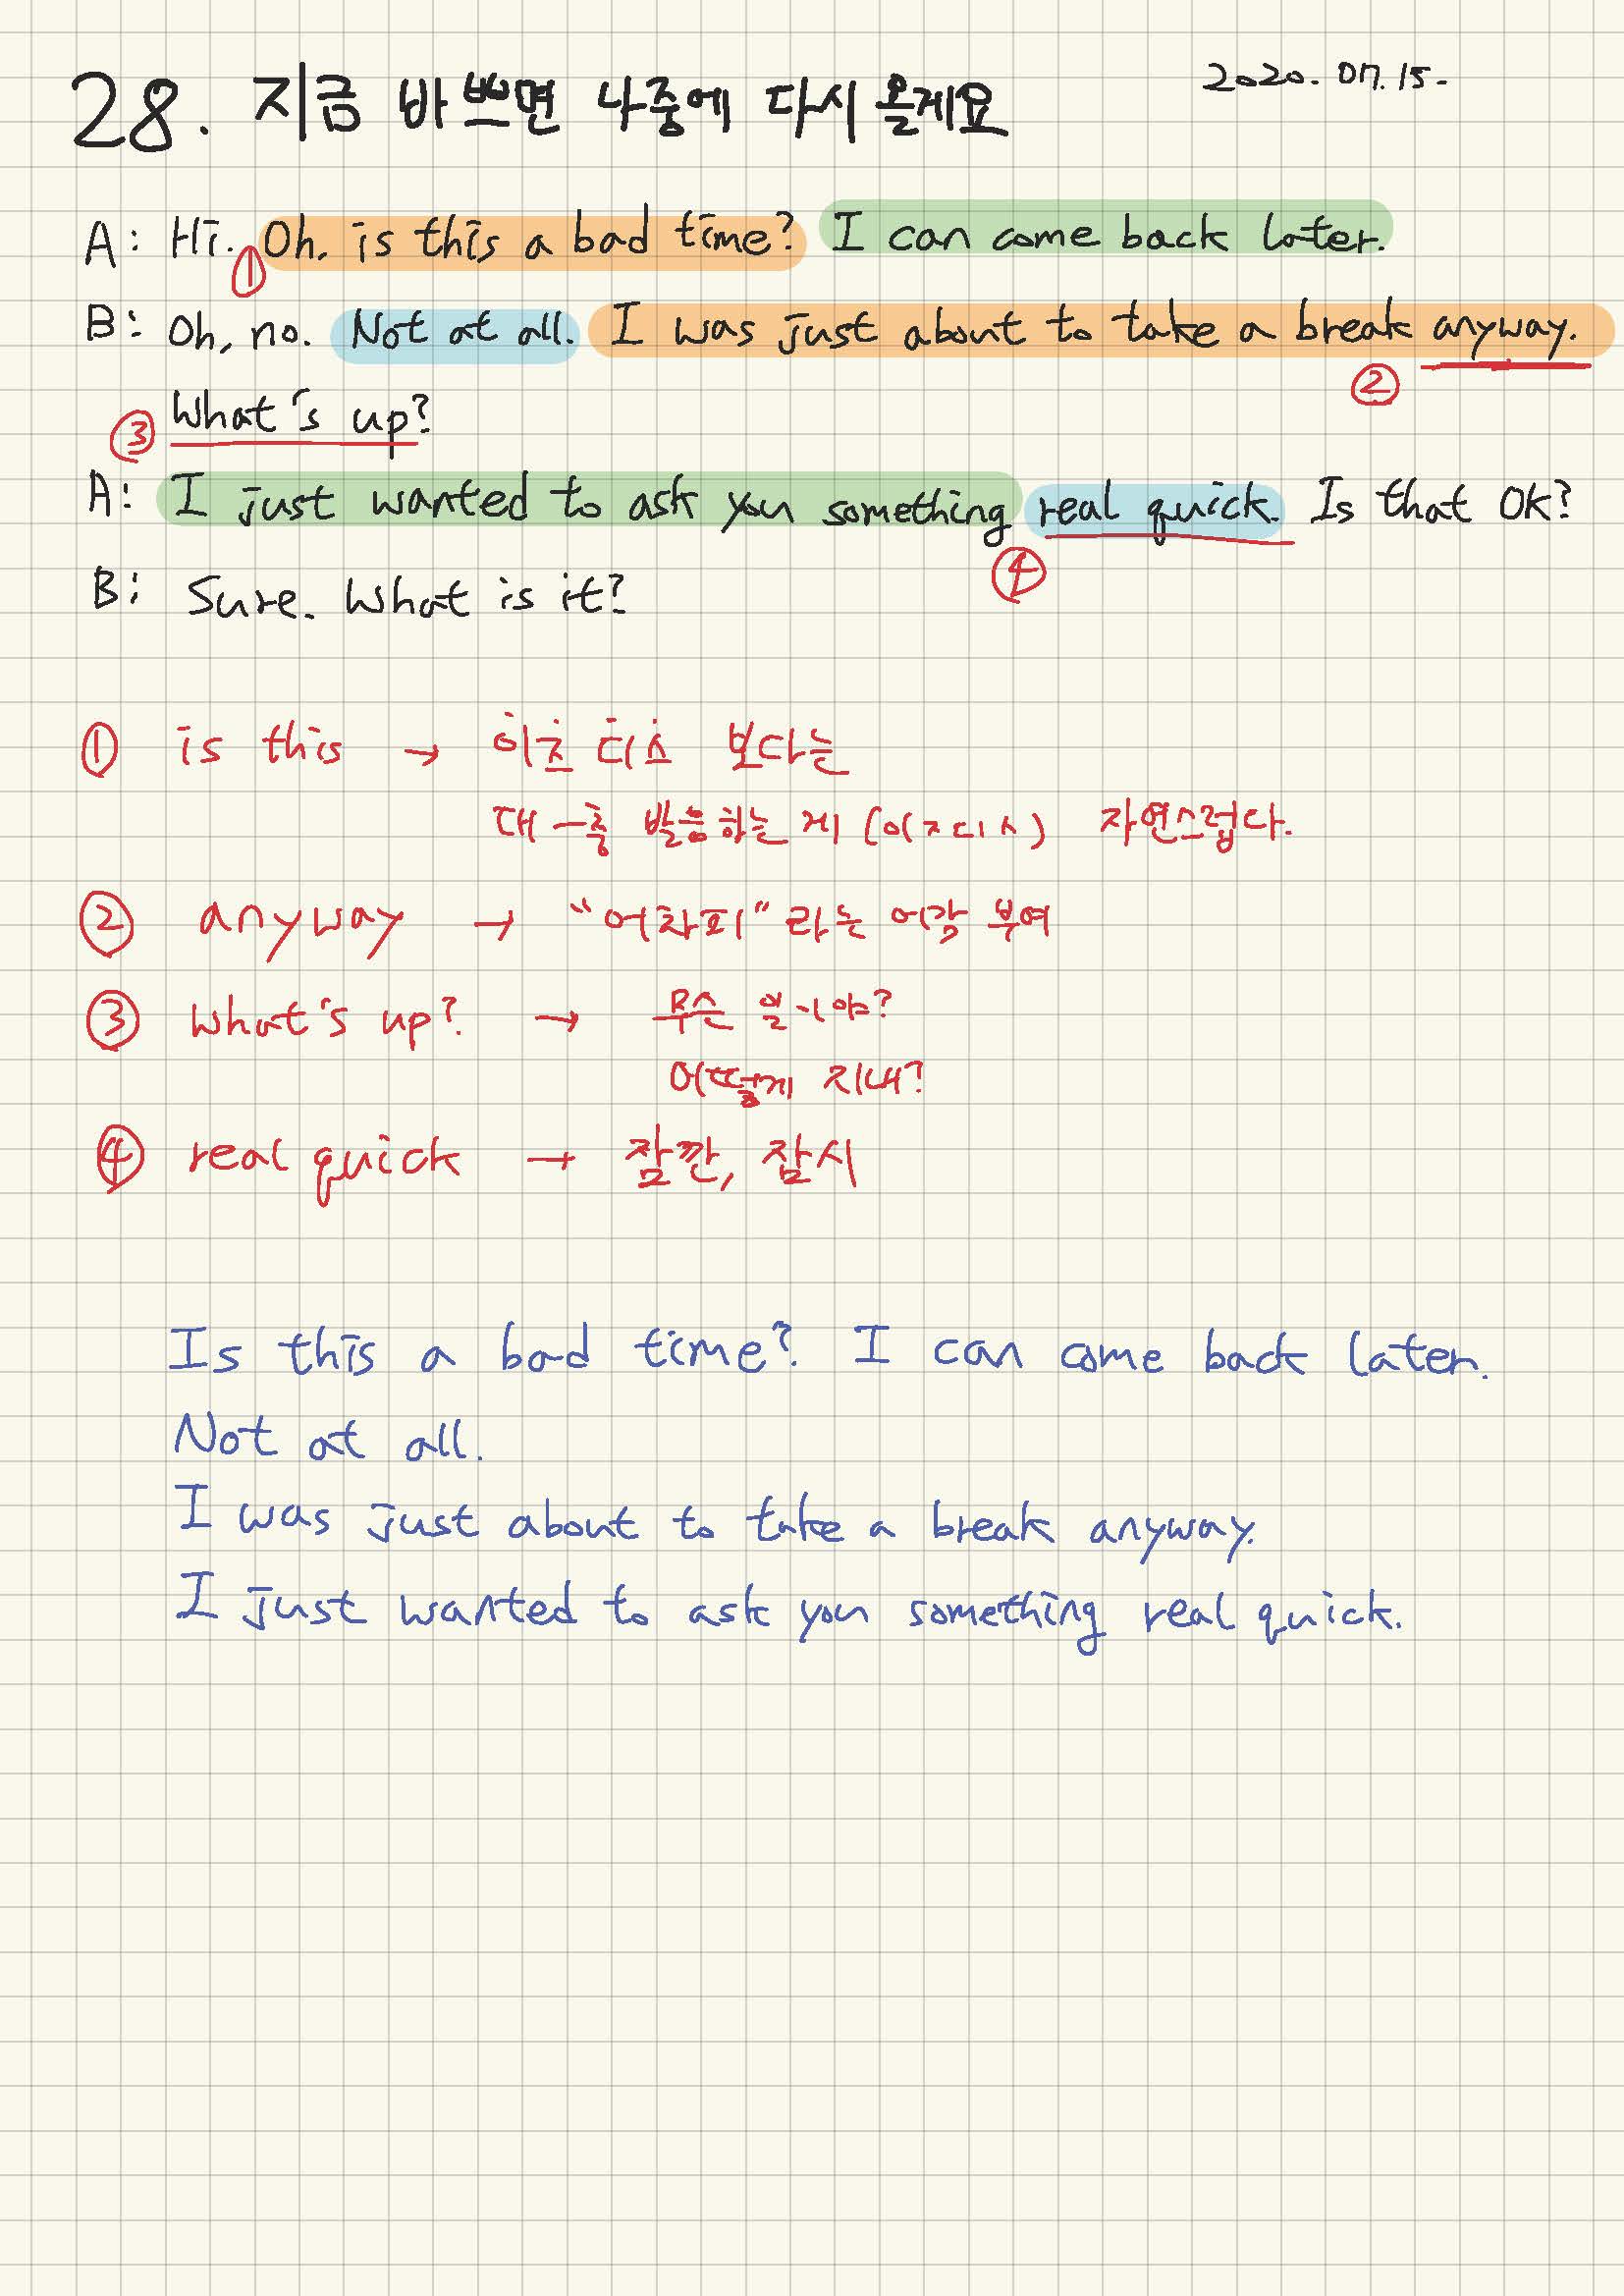 28. 지금 바쁘면 나중에 다시 올게요
2020. 07. 15.
A: Hi. Oh, is this a bad time? I can come back later.
①
B: Oh, no. Not at all. I was just about to take a break anyway.
②
③ What's up?
A: I just wanted to ask you something real quick. Is that OK?
④
B: Sure. What is it?
① is this → 이즈 디스 보다는
대충 발음하는 게 (이즈디스) 자연스럽다.
② anyway → "어차피" 라는 어감 부여
③ What's up? → 무슨 일이야?
어떻게 지내?
④ real quick → 잠깐, 잠시
Is this a bad time? I can come back later.
Not at all.
I was just about to take a break anyway.
I just wanted to ask you something real quick.